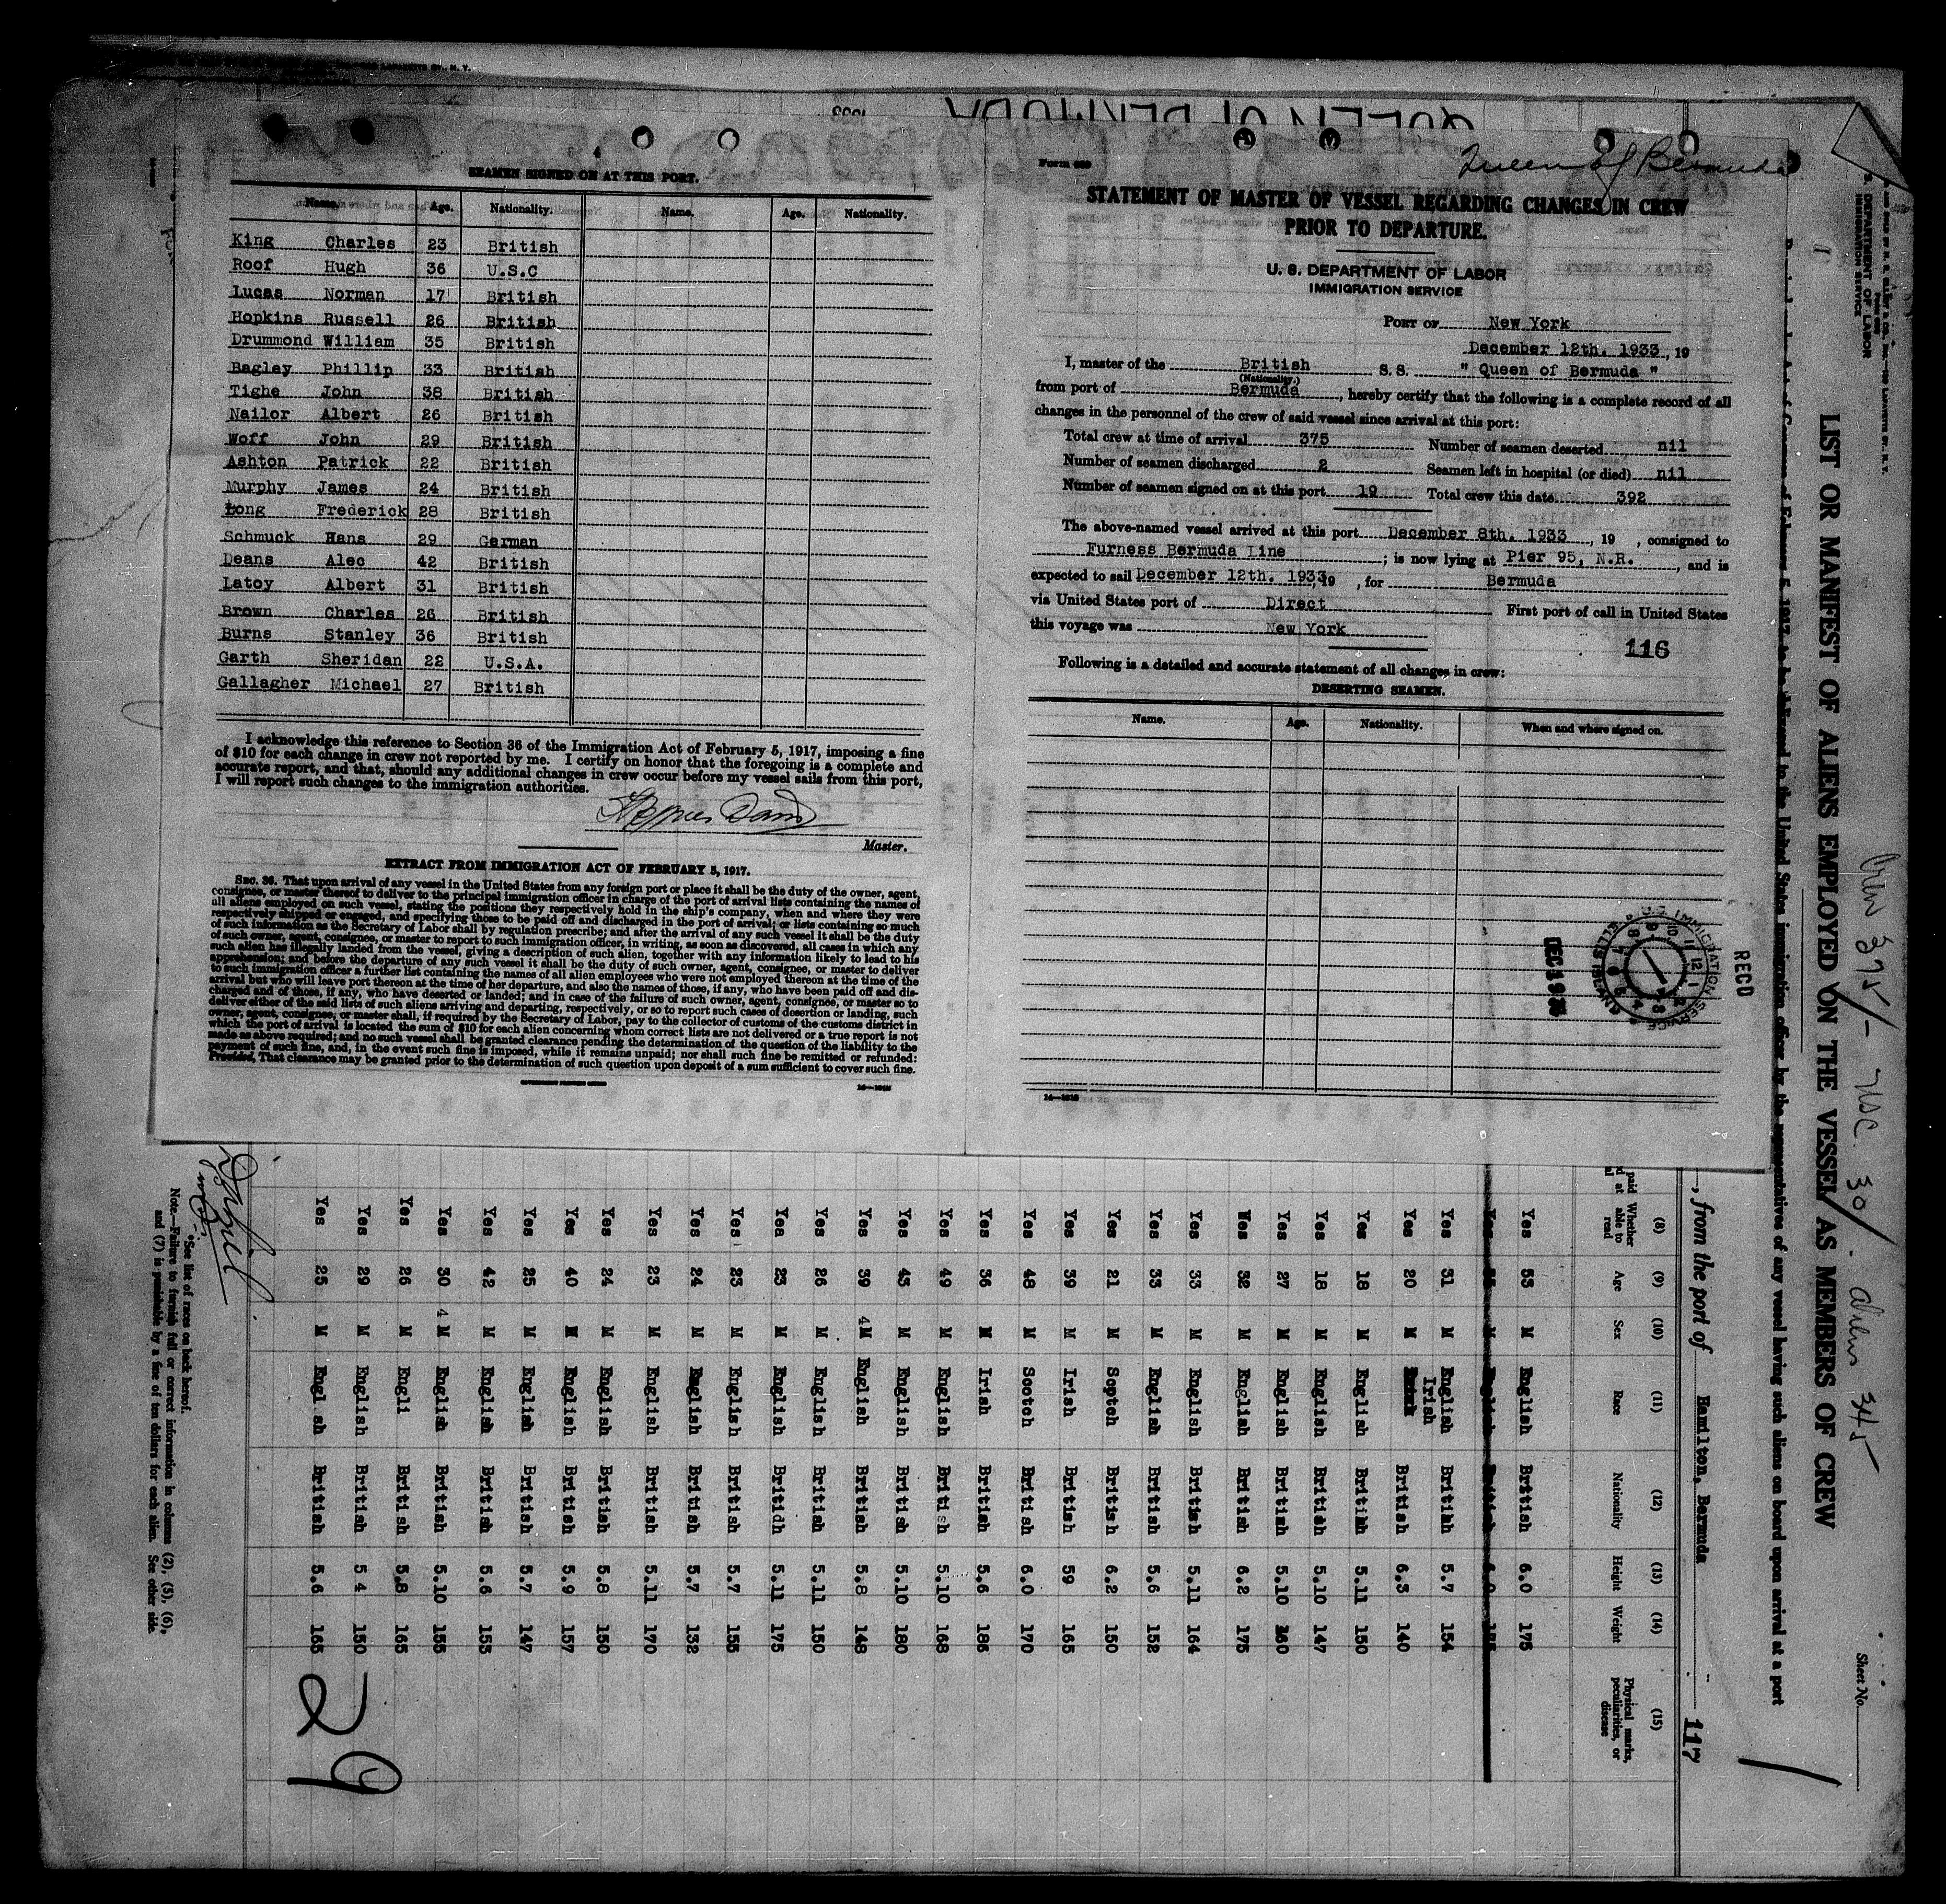 SEAMEN SIGNED ON AT THIS PORT.
Name. Age. Nationality. Name. Age. Nationality.
King Charles 23 British
Roof Hugh 36 U.S.C
Lucas Norman 17 British
Hopkins Russell 26 British
Drummond William 35 British
Bagley Phillip 33 British
Tighe John 38 British
Nailor Albert 26 British
Woff John 29 British
Ashton Patrick 22 British
Murphy James 24 British
Long Frederick 28 British
Schmuck Hans 29 German
Deans Alec 42 British
Latoy Albert 31 British
Brown Charles 26 British
Burns Stanley 36 British
Garth Sheridan 22 U.S.A.
Gallagher Michael 27 British
I acknowledge this reference to Section 36 of the Immigration Act of February 5, 1917, imposing a fine
of $10 for each change in crew not reported by me. I certify on honor that the foregoing is a complete and
accurate report, and that, should any additional changes in crew occur before my vessel sails from this port,
I will report such changes to the immigration authorities.
Master.
EXTRACT FROM IMMIGRATION ACT OF FEBRUARY 5, 1917.
SEC. 36. That upon arrival of any vessel in the United States from any foreign port or place it shall be the duty of the owner, agent,
consignee, or master thereof to deliver to the principal immigration officer in charge of the port of arrival lists containing the names of
all aliens employed on such vessel, stating the positions they respectively hold in the ship's company, when and where they were
respectively shipped or engaged, and specifying those to be paid off and discharged in the port of arrival; or lists containing so much
of such information as the Secretary of Labor shall by regulation prescribe; and after the arrival of any such vessel it shall be the duty
of such owner, agent, consignee, or master to report to such immigration officer, in writing, as soon as discovered, all cases in which any
such alien has illegally landed from the vessel, giving a description of such alien, together with any information likely to lead to his
apprehension; and before the departure of any such vessel it shall be the duty of such owner, agent, consignee, or master to deliver
to such immigration officer a further list containing the names of all alien employees who were not employed thereon at the time of the
arrival but who will leave port thereon at the time of her departure, and also the names of those, if any, who have been paid off and dis-
charged and of those, if any, who have deserted or landed; and in case of the failure of such owner, agent, consignee, or master so to
deliver either of the said lists of such aliens arriving and departing, respectively, or so to report such cases of desertion or landing, such
owner, agent, consignee, or master shall, if required by the Secretary of Labor, pay to the collector of customs of the customs district in
which the port of arrival is located the sum of $10 for each alien concerning whom correct lists are not delivered or a true report is not
made as above required; and no such vessel shall be granted clearance pending the determination of the question of the liability to the
payment of such fine, and, in the event such fine is imposed, while it remains unpaid; nor shall such fine be remitted or refunded:
Provided, That clearance may be granted prior to the determination of such question upon deposit of a sum sufficient to cover such fine.
QUEEN OF BERMUDA
Queen of Bermuda
STATEMENT OF MASTER OF VESSEL REGARDING CHANGES IN CREW
PRIOR TO DEPARTURE.
U. S. DEPARTMENT OF LABOR
IMMIGRATION SERVICE
PORT OF New York
December 12th. 1933, 19
I, master of the British S.S. " Queen of Bermuda "
(Nationality.)
from port of Bermuda, hereby certify that the following is a complete record of all
changes in the personnel of the crew of said vessel since arrival at this port:
Total crew at time of arrival 375 Number of seamen deserted nil
Number of seamen discharged 2 Seamen left in hospital (or died) nil
Number of seamen signed on at this port 19 Total crew this date 392
The above-named vessel arrived at this port December 8th. 1933, 19 , consigned to
Furness Bermuda Line ; is now lying at Pier 95, N.R., and is
expected to sail December 12th. 1933, 19 , for Bermuda
via United States port of Direct First port of call in United States
this voyage was New York
116
Following is a detailed and accurate statement of all changes in crew:
DESERTING SEAMEN.
Name. Age. Nationality. When and where signed on.
RECD
U.S. IMMIGRATION SERVICE
ELLIS ISLAND
LIST OR MANIFEST OF ALIENS EMPLOYED ON THE VESSEL AS MEMBERS OF CREW
Crew 375/- USC. 30/. aliens 345
Sheet No.
, from the port of Hamilton, Bermuda
117
(8) (9) (10) (11) (12) (13) (14) (15)
Whether able to read Age Sex Race Nationality Height Weight Physical marks, peculiarities, or disease
Yes 53 M English British 6.0 175
Yes 31 M English British 5.7 154
Yes 20 M Irish British 6.3 140
Yes 18 M English British 5.11 150
Yes 18 M English British 5.10 147
Yes 27 M English British 5.10 160
Yes 32 M English British 6.2 175
Yes 33 M English British 5.11 164
Yes 33 M English British 5.6 152
Yes 21 M Scotch British 6.2 150
Yes 39 M Irish British 59 165
Yes 48 M Scotch British 6.0 170
Yes 36 M Irish British 5.6 186
Yes 49 M English British 5.10 168
Yes 43 M English British 5.10 180
Yes 39 4M English British 5.8 148
Yes 26 M English British 5.11 150
Yes 23 M English Britidh 5.11 175
Yes 23 M English British 5.7 155
Yes 24 M English British 5.7 132
Yes 23 M English British 5.11 170
Yes 24 M English British 5.8 150
Yes 40 M English British 5.9 157
Yes 25 M English British 5.7 147
Yes 42 M English British 5.6 155
Yes 30 4 M English British 5.10 155
Yes 26 M Engli British 5.8 165
Yes 29 M English British 5 4 150
Yes 25 M Engl sh British 5.6 165
29
*See list of races on back hereof.
Note.—Failure to furnish full or correct information in columns (2), (5), (6),
and (7) is punishable by a fine of ten dollars for each alien. See other side.